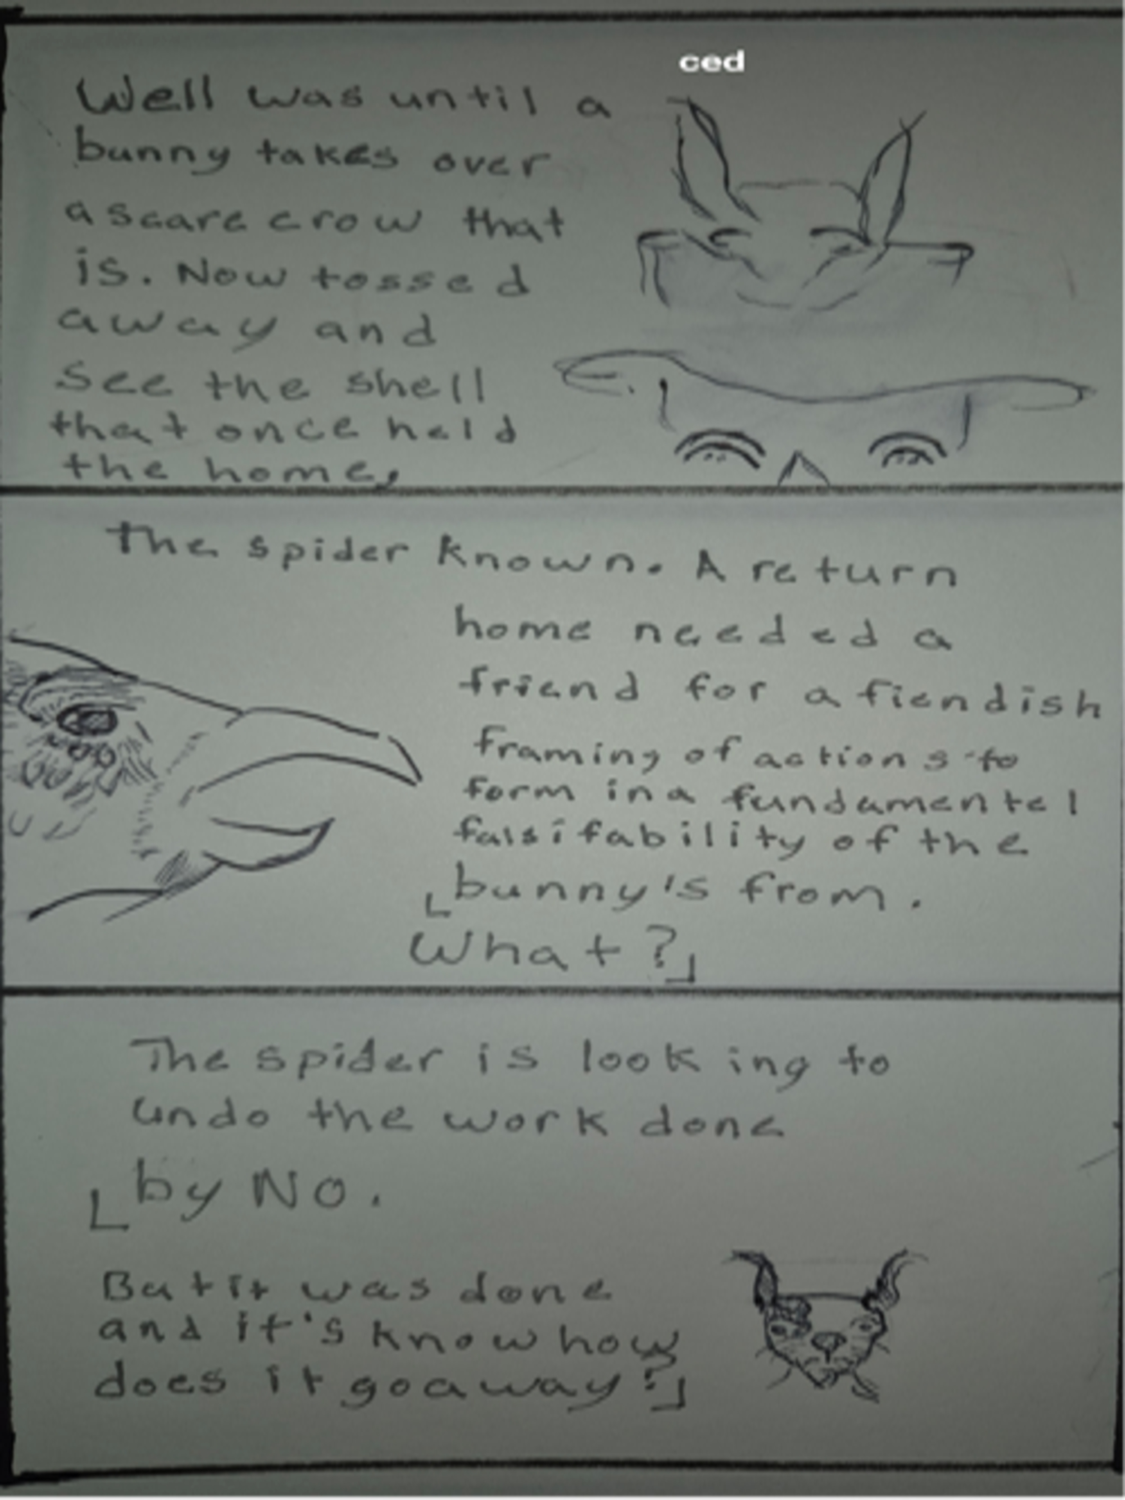 ced
Well was until a
bunny takes over
a scarecrow that
is. Now tossed
away and
see the shell
that once held
the home.
The spider known. A return
home needed a
friend for a fiendish
framing of actions to
form in a fundamental
falsifability of the
bunny's from.
What?
The spider is looking to
undo the work done
by NO.
But it was done
and it's know how
does it go away?